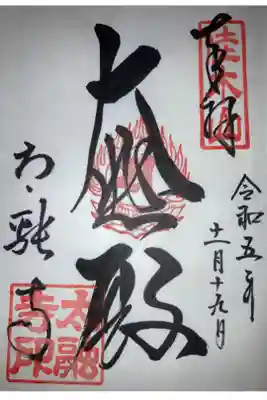 奉拝
令和五年
十一月十九日
大悲殿
太融寺
太融寺印